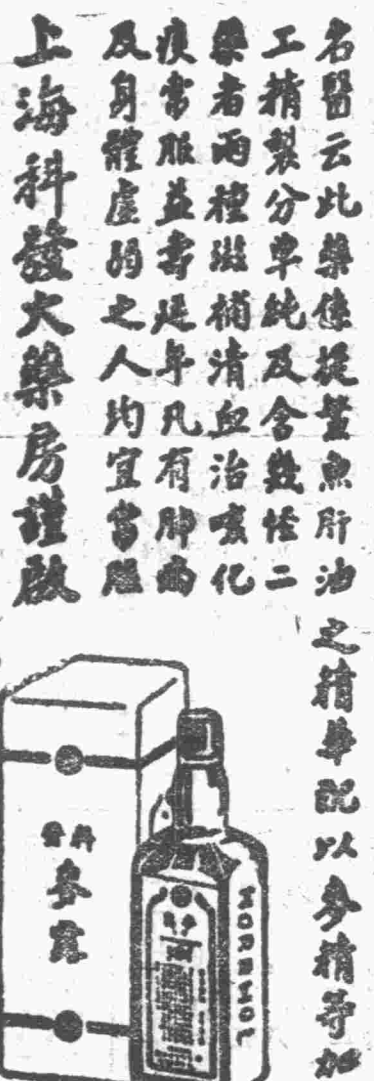 名醫云此藥係提鰵魚肝油之精華配以參精等加
工精製分單純及含幾怪二
藥者兩種滋補清血治咳化
痰常服益壽延年凡有肺癆
及身體虛弱之人均宜當服
上海科發大藥房謹啟
科發
參露
MORRHOL